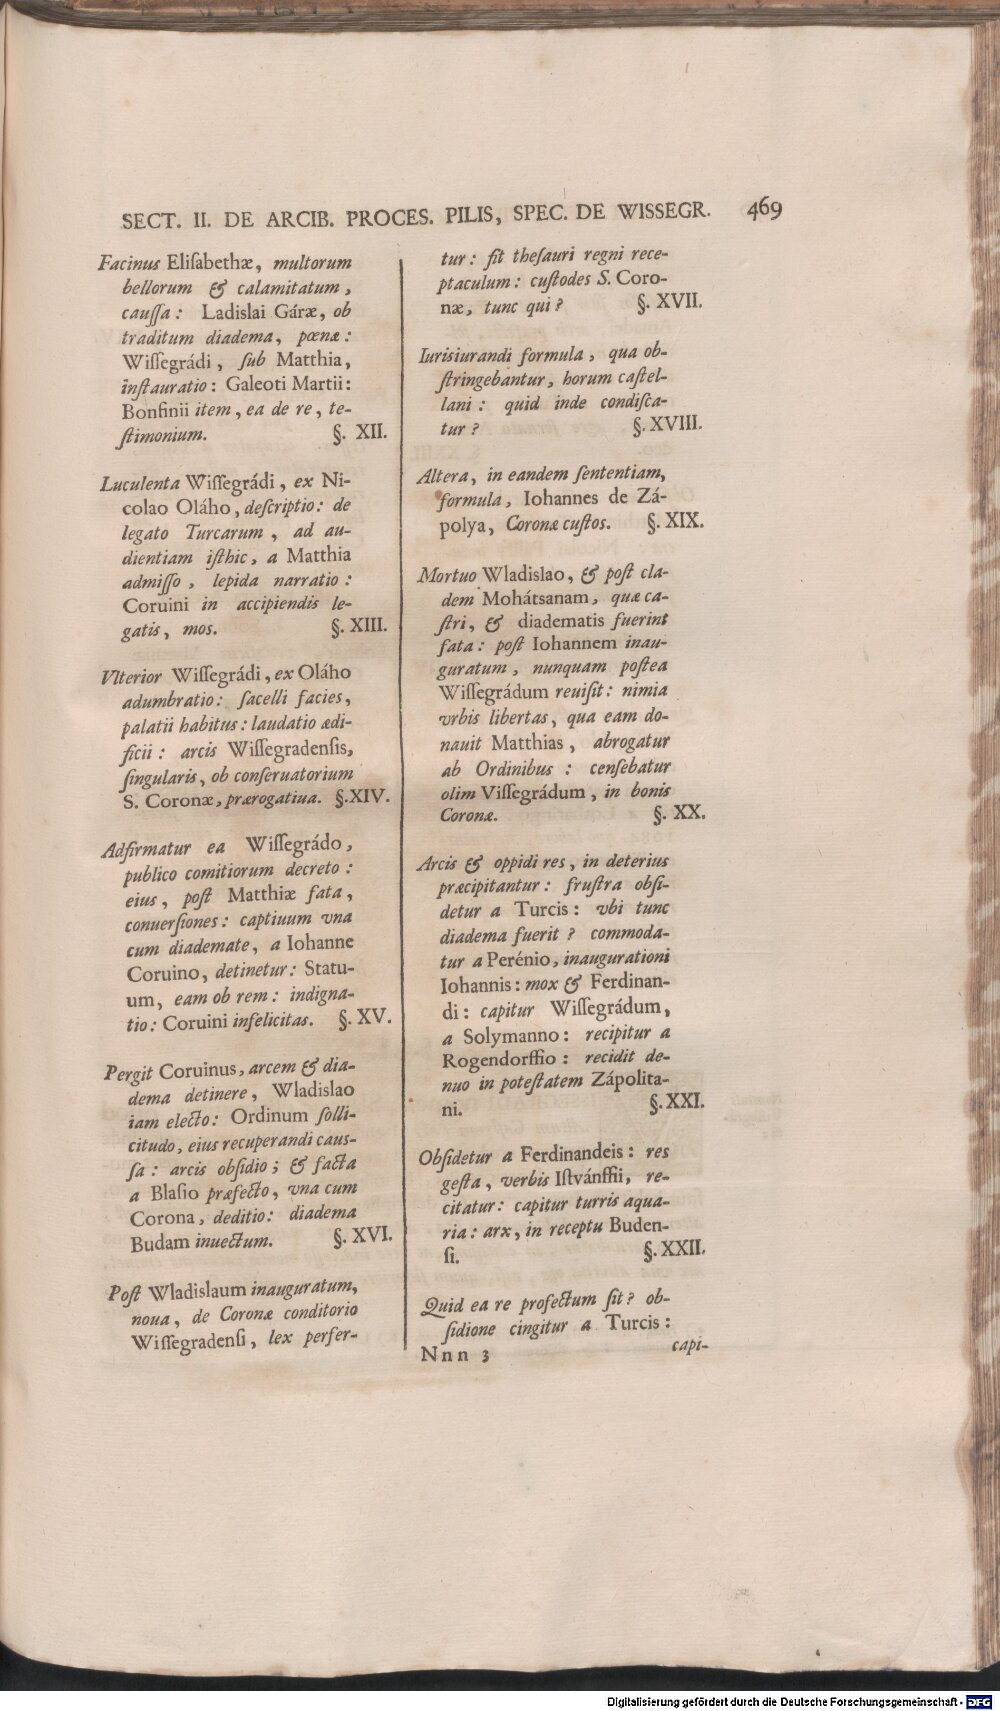 SECT. II. DE ARCIB. PROCES. PILIS, SPEC. DE WISSEGR. 469
Facinus Eliſabethæ, multorum
bellorum & calamitatum,
cauſſa: Ladislai Gáræ, ob
traditum diadema, pœnæ:
Wiſſegrádi, ſub Matthia,
inſtauratio: Galeoti Martii:
Bonfinii item, ea de re, te-
ſtimonium. §. XII.
Luculenta Wiſſegrádi, ex Ni-
colao Oláho, deſcriptio: de
legato Turcarum, ad au-
dientiam iſthic, a Matthia
admiſſo, lepida narratio:
Coruini in accipiendis le-
gatis, mos. §. XIII.
Vlterior Wiſſegrádi, ex Oláho
adumbratio: ſacelli facies,
palatii habitus: laudatio ædi-
ficii: arcis Wiſſegradenſis,
ſingularis, ob conſeruatorium
S. Coronæ, prærogatiua. §.XIV.
Adfirmatur ea Wiſſegrádo,
publico comitiorum decreto:
eius, poſt Matthiæ fata,
conuerſiones: captiuum vna
cum diademate, a Iohanne
Coruino, detinetur: Statu-
um, eam ob rem: indigna-
tio: Coruini infelicitas. §. XV.
Pergit Coruinus, arcem & dia-
dema detinere, Wladislao
iam electo: Ordinum ſolli-
citudo, eius recuperandi caus-
ſa: arcis obſidio; & facta
a Blaſio præfecto, vna cum
Corona, deditio: diadema
Budam inuectum. §. XVI.
Poſt Wladislaum inauguratum,
noua, de Coronæ conditorio
Wiſſegradenſi, lex perfer-
tur: ſit theſauri regni rece-
ptaculum: cuſtodes S. Coro-
næ, tunc qui? §. XVII.
Iurisiurandi formula, qua ob-
ſtringebantur, horum caſtel-
lani: quid inde condiſca-
tur? §. XVIII.
Altera, in eandem ſententiam,
formula, Iohannes de Zá-
polya, Coronæ cuſtos. §. XIX.
Mortuo Wladislao, & poſt cla-
dem Mohátsanam, quæ ca-
ſtri, & diadematis fuerint
fata: poſt Iohannem inau-
guratum, nunquam poſtea
Wiſſegrádum reuiſit: nimia
vrbis libertas, qua eam do-
nauit Matthias, abrogatur
ab Ordinibus: cenſebatur
olim Viſſegrádum, in bonis
Coronæ. §. XX.
Arcis & oppidi res, in deterius
præcipitantur: fruſtra obſi-
detur a Turcis: vbi tunc
diadema fuerit? commoda-
tur a Perénio, inaugurationi
Iohannis: mox & Ferdinan-
di: capitur Wiſſegrádum,
a Solymanno: recipitur a
Rogendorffio: recidit de-
nuo in poteſtatem Zápolita-
ni. §. XXI.
Obſidetur a Ferdinandeis: res
geſta, verbis Iſtvánffii, re-
citatur: capitur turris aqua-
ria: arx, in receptu Buden-
ſi. §. XXII.
Quid ea re profectum ſit? ob-
ſidione cingitur a Turcis:
Nnn 3 capi-
Digitalisierung gefördert durch die Deutsche Forschungsgemeinschaft - DFG